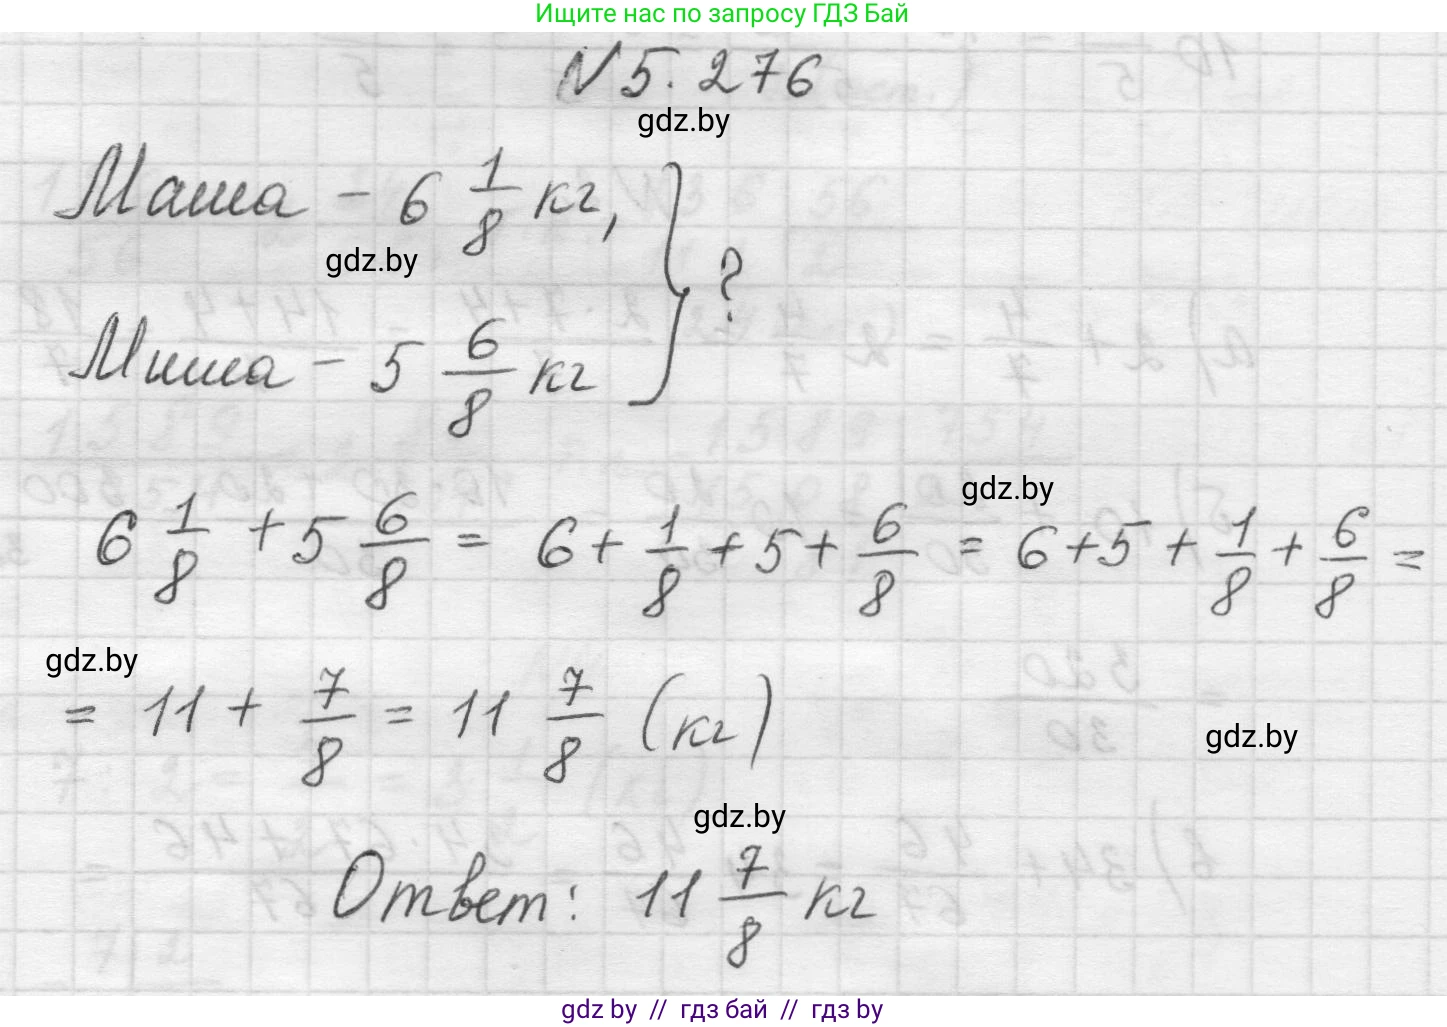 Ищите нас по запросу ГДЗ Бай
№ 5.276
gdz.by
Маша – 6 1/8 кг,
gdz.by
} ?
Миша – 5 6/8 кг
gdz.by
6 1/8 + 5 6/8 = 6 + 1/8 + 5 + 6/8 = 6 + 5 + 1/8 + 6/8 =
gdz.by
= 11 + 7/8 = 11 7/8 (кг)
gdz.by
gdz.by
Ответ: 11 7/8 кг
gdz by // гдз бай // гдз by